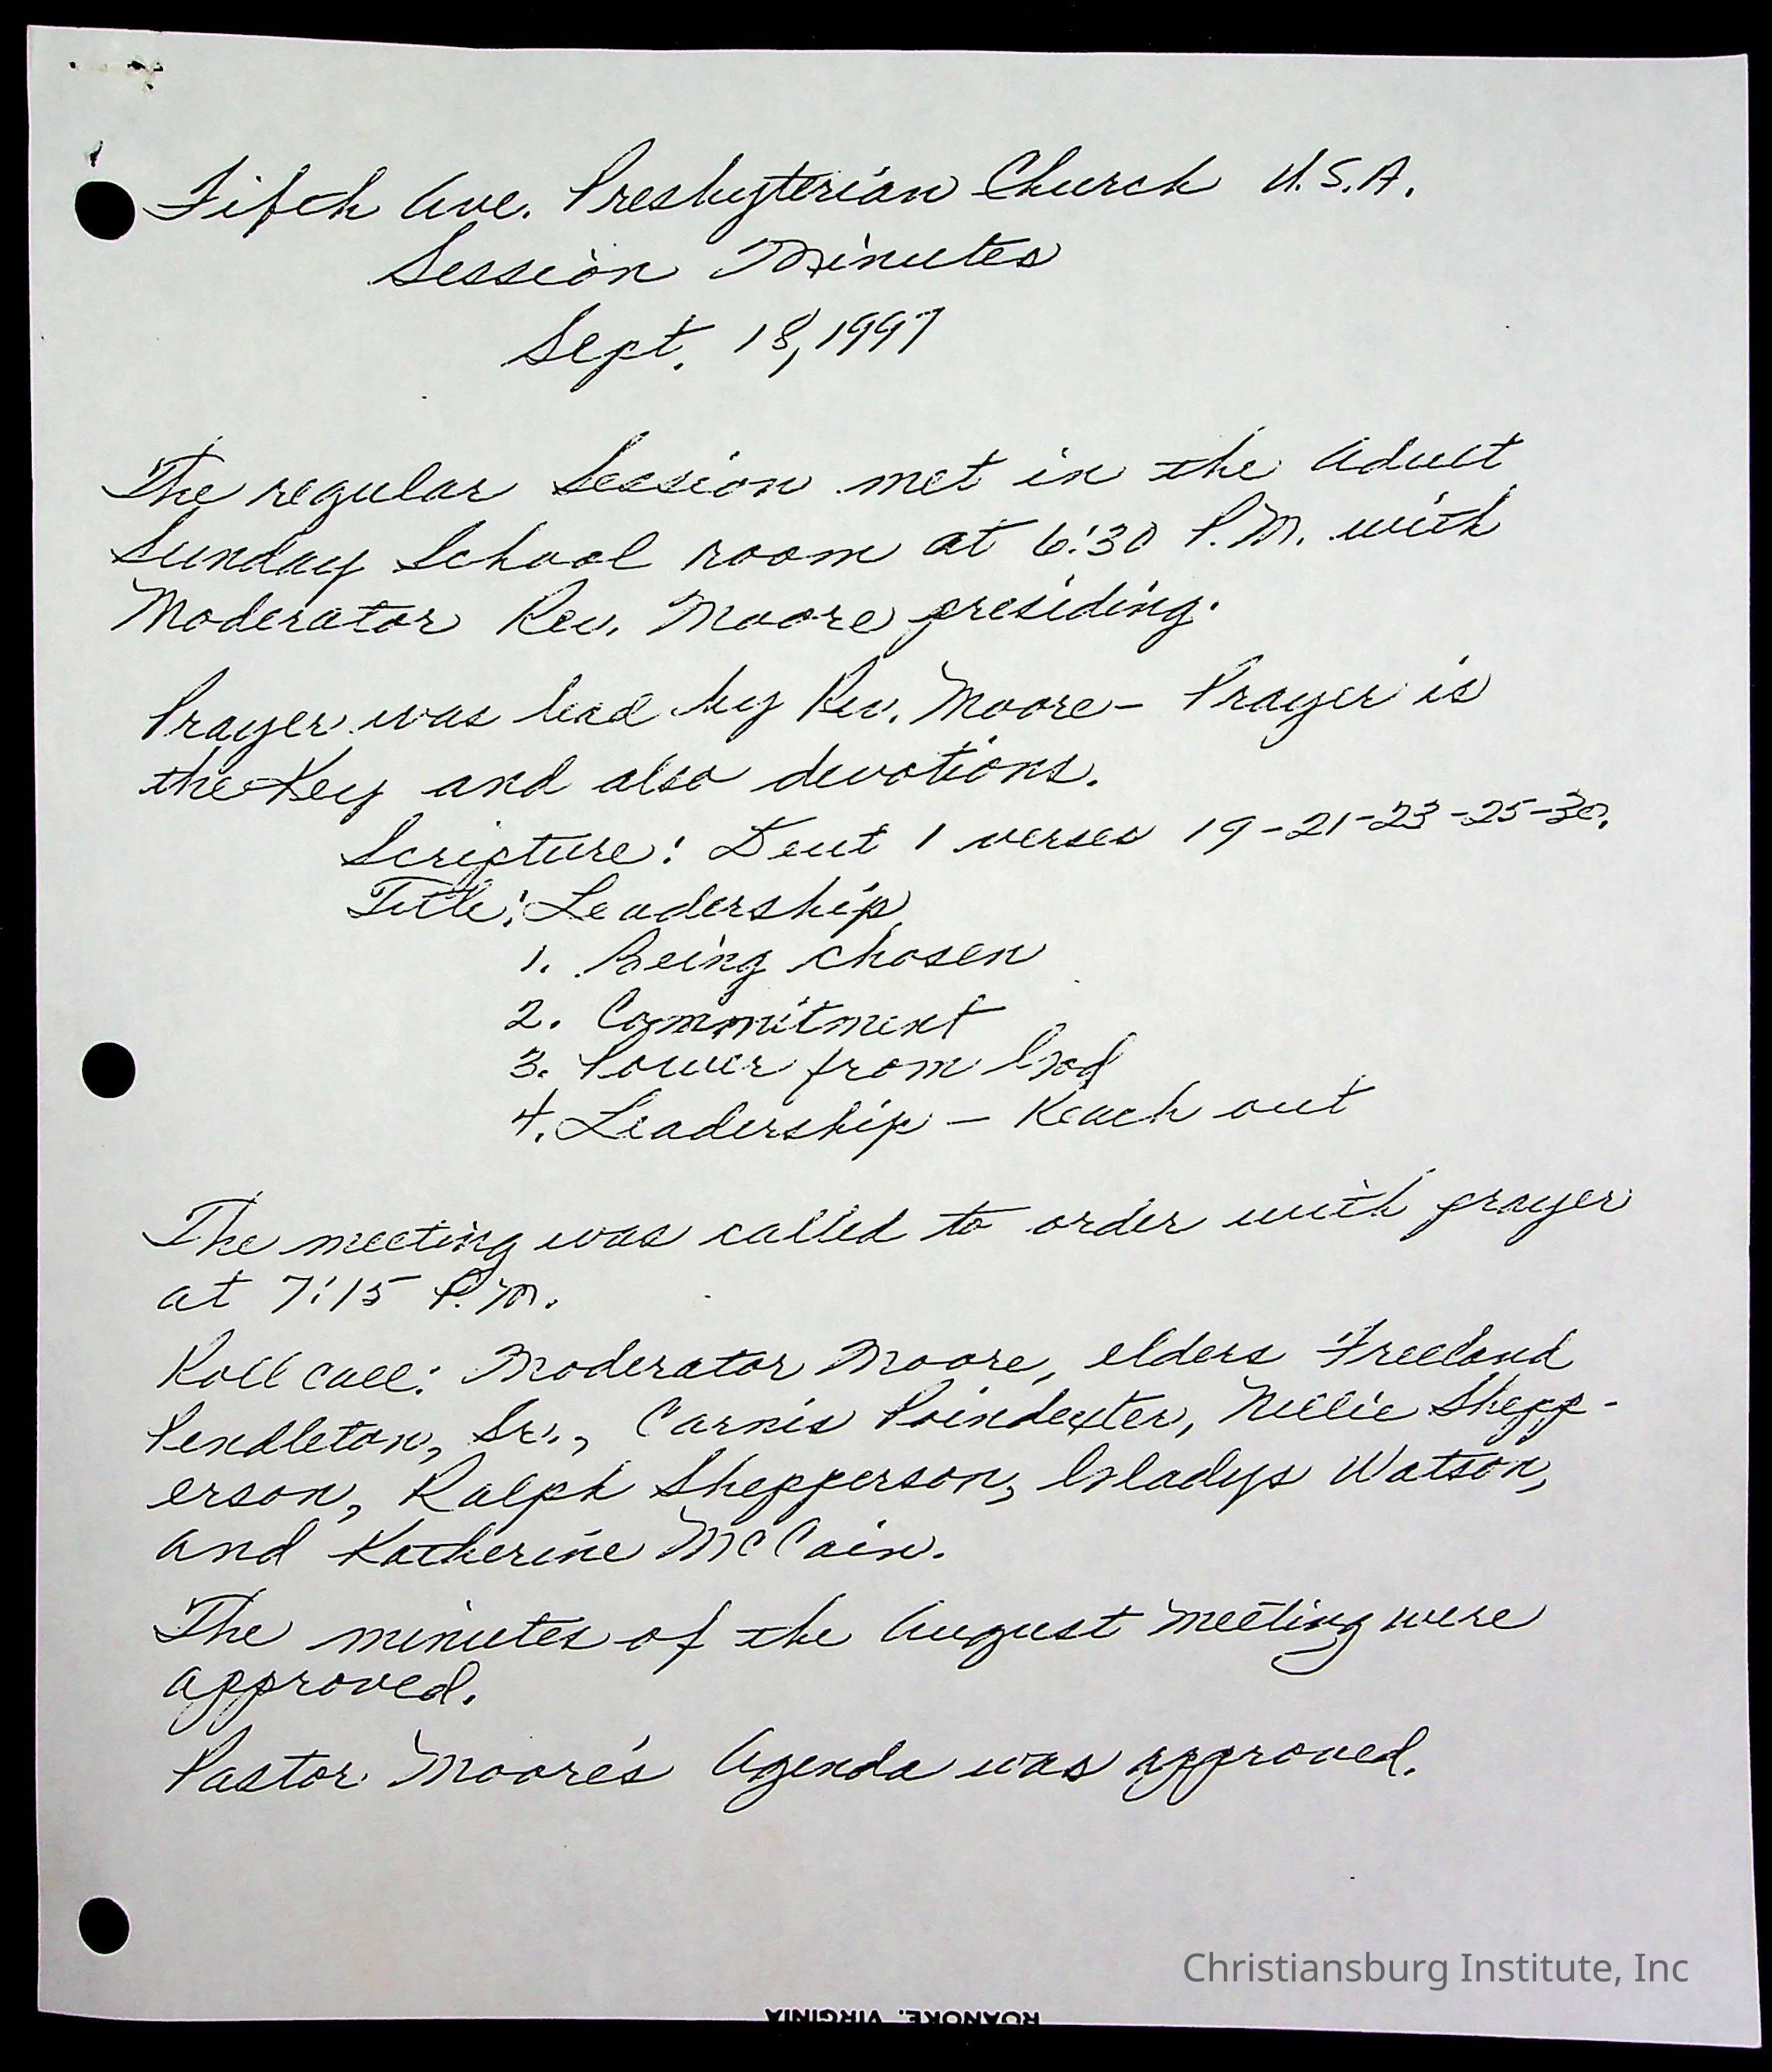 Fifth Ave. Presbyterian Church U.S.A.
Session Minutes
Sept. 18, 1997
The regular Session met in the Adult
Sunday School room at 6:30 P.M. with
Moderator Rev. Moore presiding.
Prayer was lead by Rev. Moore - Prayer is
the Key and also devotions.
Scripture: Deut 1 verses 19-21-23-25-30.
Title: Leadership
1. Being chosen
2. Commitment
3. Power from God
4. Leadership - Reach out
The meeting was called to order with prayer
at 7:15 P.M.
Roll call: Moderator Moore, elders Freeland
Pendleton, Sr., Carnis Poindexter, Nellie Shepp-
erson, Ralph Shepperson, Gladys Watson,
and Katherine McCain.
The minutes of the August meeting were
approved.
Pastor Moore's Agenda was approved.
Christiansburg Institute, Inc
ROANOKE, VIRGINIA